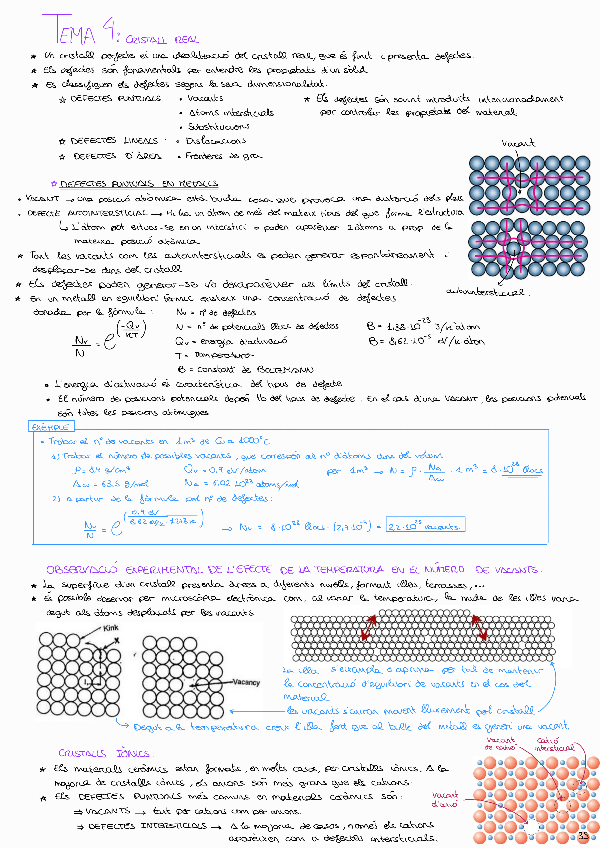 TEMA 4: CRISTALL REAL
* Un cristall perfecte és una idealització del cristall real, que és finit i presenta defectes.
* Els defectes són fonamentals per entendre les propietats d'un sòlid.
* Es classifiquen els defectes segons la seva dimensionalitat.
☆ DEFECTES PUNTUALS • Vacants
• Àtoms intersticials
• Substitucions
* Els defectes són sovint introduïts intencionadament
per controlar les propietats del material.
☆ DEFECTES LINEALS: • Dislocacions
☆ DEFECTES D'ÀREA • Fronteres de gra
Vacant
☆ DEFECTES PUNTUALS EN METALLS
• VACANT → una posició atòmica està buida cosa que provoca una distorsió dels plans
• DEFECTE AUTOINTERSTICIAL → Hi ha un àtom de més del mateix tipus del que forma l'estructura
↳ L'àtom pot situar-se en un interstici o poden aparèixer 2 àtoms a prop de la
mateixa posició atòmica
* Tant les vacants com les autointersticials es poden generar espontàneament i
desplaçar-se dins del cristall
autointersticial.
* Els defectes poden generar-se i/o desaparèixer als límits del cristall.
* En un metall en equilibri tèrmic existeix una concentració de defectes
donada per la fórmula:
Nv = nº de defectes
N = nº de potencials llocs de defectes
Qv = energia d'activació
T = Temperatura
B = constant de BOLTZMANN
B = 1,38·10⁻²³ J/K àtom
B = 8,62·10⁻⁵ eV/K àtom
Nv/N = e^(-Qv/KT)
• L'energia d'activació és característica del tipus de defecte
• El número de posicions potencials depèn del tipus de defecte. En el cas d'una VACANT, les posicions potencials
són totes les posicions atòmiques
EXEMPLE
• Trobar el nº de vacants en 1 m³ de Cu a 1000ºC
1) Trobar el número de possibles vacants, que correspon al nº d'àtoms dins del volum
ρ = 8,4 g/cm³ Qv = 0,9 eV/atom per 1m³ → N = ρ · NA/Acu · 1 m³ = 8·10²⁸ llocs
Acu = 63,5 g/mol NA = 6,02·10²³ atoms/mol
2) A partir de la fórmula pel nº de defectes:
→ Nv = 8·10²⁸ llocs · (2,7·10⁻⁴) = 2,2·10²⁵ vacants.
OBSERVACIÓ EXPERIMENTAL DE L'EFECTE DE LA TEMPERATURA EN EL NÚMERO DE VACANTS.
* La superfície d'un cristall presenta àrees a diferents nivells, formant illes, terrasses,...
* És possible observar per microscòpia electrònica com, al variar la temperatura, la mida de les illes varia
degut als àtoms desplaçats per les vacants.
Kink
Vacancy
La illa s'eixampla o aprima per tal de mantenir
la concentració d'equilibri de vacants en el cos del
material
les vacants s'aniran movent lliurement pel cristall
Degut a la temperatura creix l'illa fent que al bulk del metall es generi una vacant.
CRISTALLS IÒNICS
* Els materials ceràmics estan formats, en molts casos, per cristalls iònics. A la
majoria de cristalls iònics, els anions són més grans que els cations
* Els DEFECTES PUNTUALS més comuns en materials ceràmics són:
⇒ VACANTS → tant per cations com per anions.
⇒ DEFECTES INTERSTICIALS → A la majoria de casos, només els cations
apareixen com a defectes intersticials.
Vacant
de catió
Catió
intersticial
Vacant
d'anió